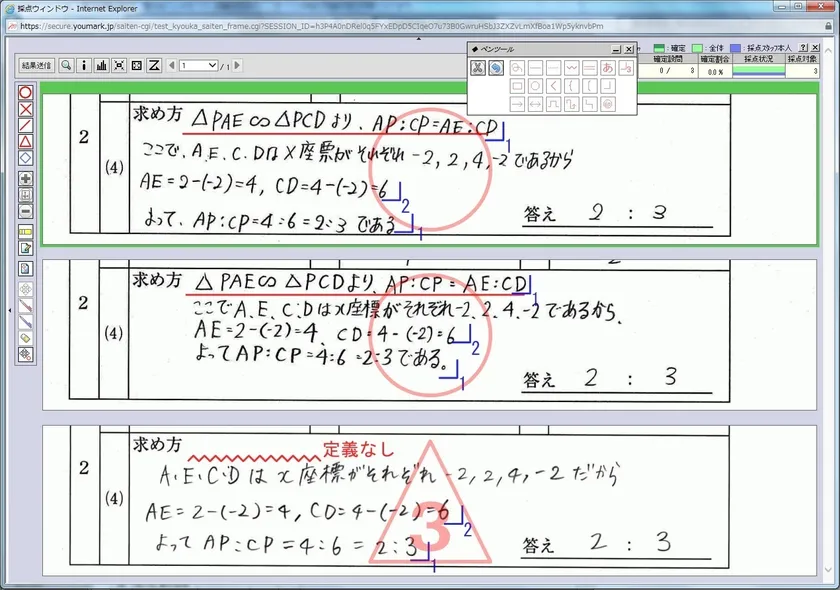 採点ウィンドウ - Internet Explorer
https://secure.youmark.jp/saiten-cgi/test_kyouka_saiten_frame.cgi?SESSION_ID=
ペンツール
：確定 ：全体 ：採点スタッフ本人
結果送信 1 / 1
確定設問 確定割合 採点状況 採点対象
0 / 3 0.0 % 3
2
(4)
求め方 △PAE∽△PCDより、AP:CP=AE:CD 1
ここで、A.E.C.Dはx座標がそれぞれ-2,2,4,-2であるから
AE=2-(-2)=4, CD=4-(-2)=6 2
よって、AP:CP=4:6=2:3である 1
答え 2 : 3
2
(4)
求め方 △PAE∽△PCDより、AP:CP = AE:CD 1
ここでA、E、C、Dはx座標がそれぞれ-2、2、4、-2であるから、
AE=2-(-2)=4、CD=4-(-2)=6 2
よってAP:CP=4:6=2:3である。 1
答え 2 : 3
2
(4)
求め方 定義なし
A、E、C、Dはx座標がそれぞれ-2,2,4,-2だから
AE=2-(-2)=4, CD=4-(-2)=6 2
よって AP:CP=4:6=2:3 1
3
答え 2 : 3